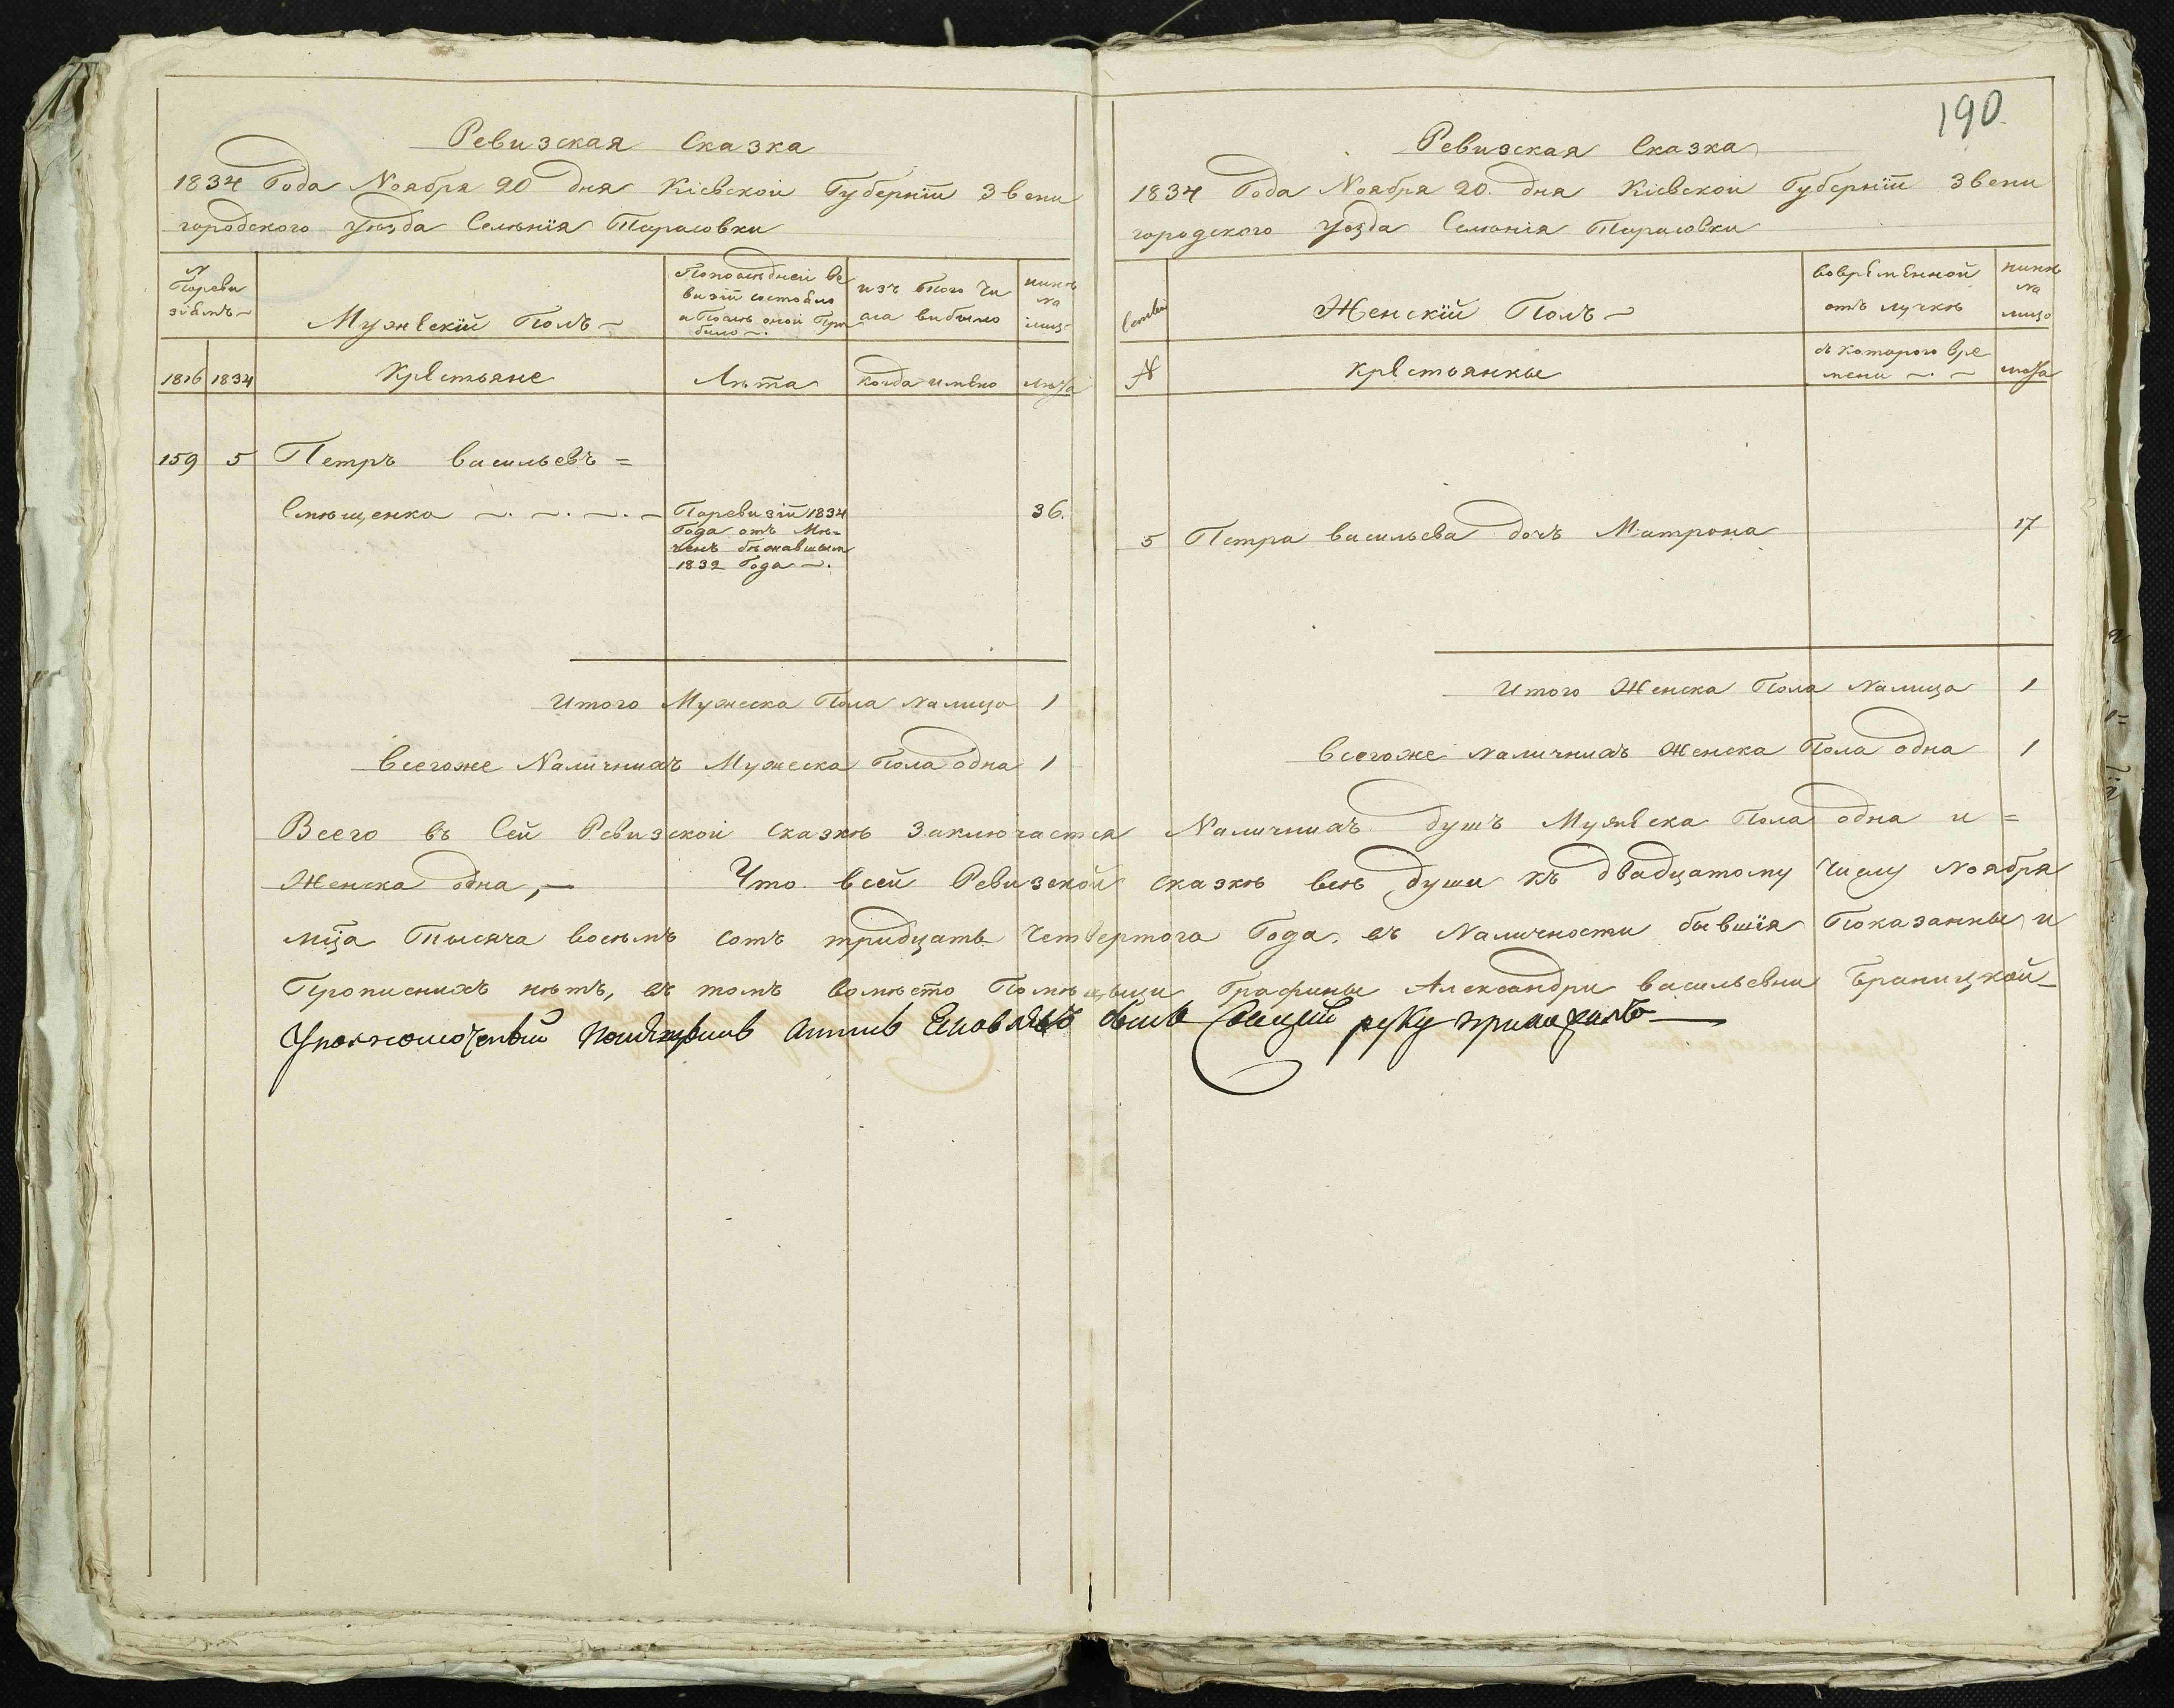 190.
Ревизская Сказка
1834 Года Ноября 20 дня Кіевской Губерніи Звени
городского Уѣзда Селѣнія Тарасовки
N
Пореви
зіямъ
Мужескій Полъ
Попослѣдней Ре
визіи состояло
и Послѣ оной При
было
изъ того Чи
сла выбыло
нинѣ
на
лицо
1816 1834
Крестьяне
Лѣта
когда имѣно
лѣта
159 5 Петръ Васильевъ =
Слющенко
Поревизіи 1834
Года отъ Мѣ-
ченъ бѣжавшым
1832 Года
36.
Итого Мужеска Пола Налицо 1
Всегоже Наличныхъ Мужеска Пола одна 1
Ревизская Сказка
1834 Года Ноября 20. дня Кіевской Губерніи Звени
городского Уѣзда Селѣнія Тарасовки
Семьи
Женскій Полъ
вовремѣнной
отълучкѣ
нинѣ
на
лицо
N
крестьянкы
съ котораго вре
мени
лѣта
5 Петра Васильева дочь Матрона 17
Итого Женска Пола Налицо 1
Всегоже наличныхъ Женска Пола одна 1
Всего въ Сей Ревизской сказкѣ Заключается Наличныхъ душъ Мужеска Пола одна и =
Женска одна, — Что всей Ревизской сказкѣ всѣ души къ двадцатому Числу Ноября
мца Тысяча восѣмъ сотъ тридцать Четвертого Года, въ Наличности бывшія Показанны и
Прописныхъ нѣтъ, въ томъ вомѣсто Помѣщыци Графины Александри Васильевни Браницкой
руку приложилъ